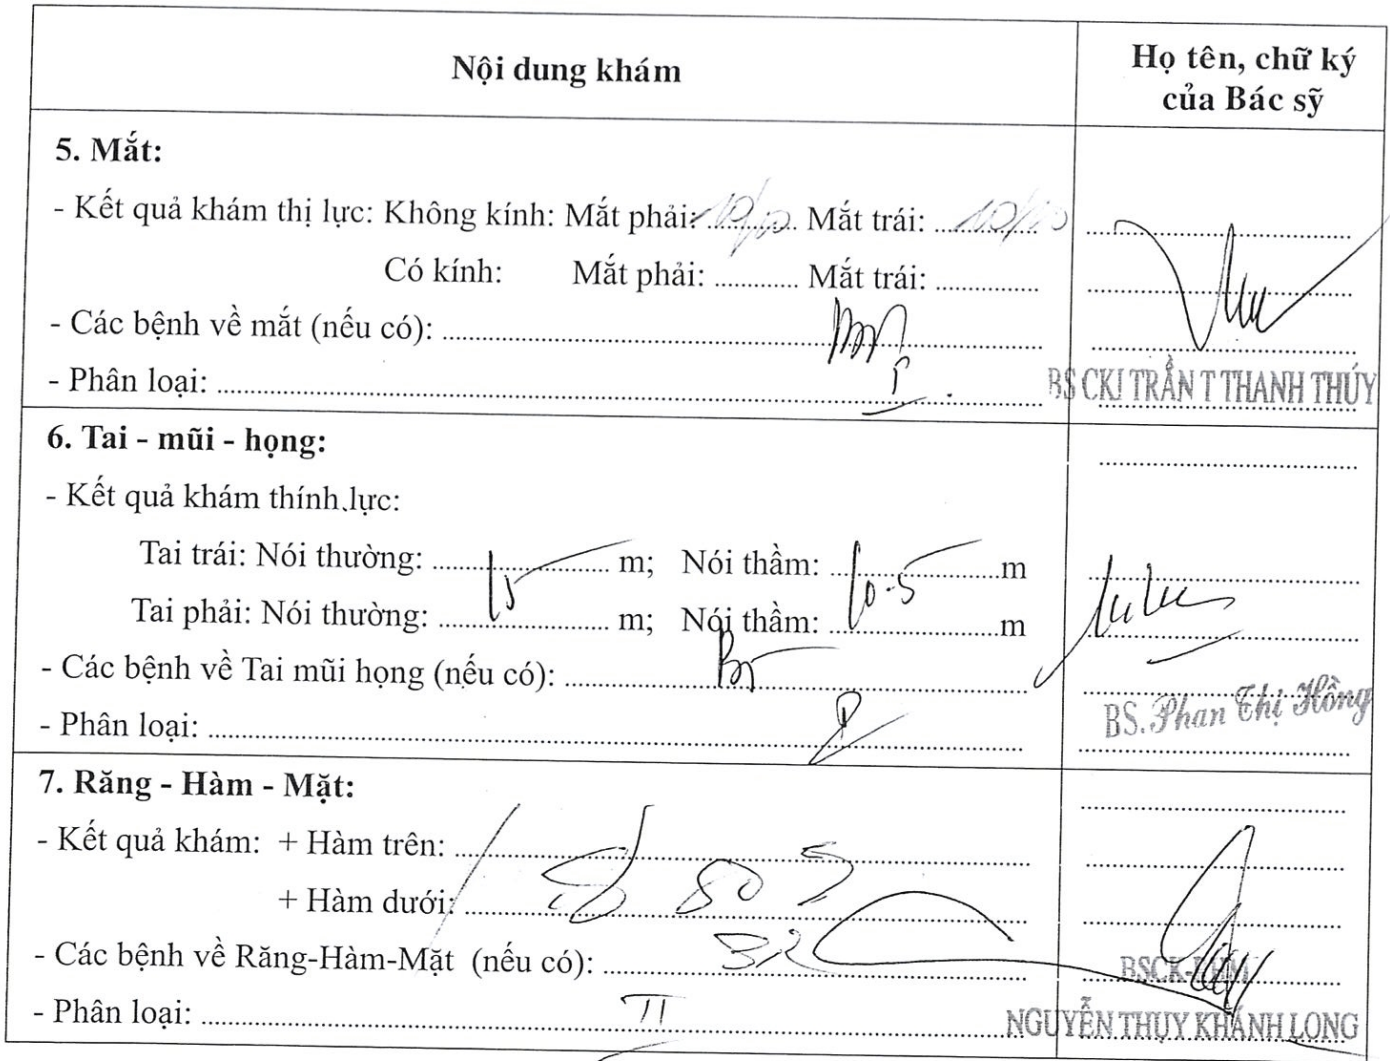 Nội dung khám
Họ tên, chữ ký
của Bác sỹ
5. Mắt:
- Kết quả khám thị lực: Không kính: Mắt phải: 10/10 Mắt trái: 10/10
Có kính: Mắt phải: ............ Mắt trái: ...............
- Các bệnh về mắt (nếu có):
- Phân loại: I
BS CKI TRẦN T THANH THÚY
6. Tai - mũi - họng:
- Kết quả khám thính lực:
Tai trái: Nói thường: ............ m; Nói thầm: ............ m
Tai phải: Nói thường: ............ m; Nói thầm: ............ m
- Các bệnh về Tai mũi họng (nếu có):
- Phân loại:
BS. Phan Thị Hồng
7. Răng - Hàm - Mặt:
- Kết quả khám: + Hàm trên:
+ Hàm dưới:
- Các bệnh về Răng-Hàm-Mặt (nếu có):
- Phân loại: II
BSCK-RHM
NGUYỄN THỤY KHÁNH LONG